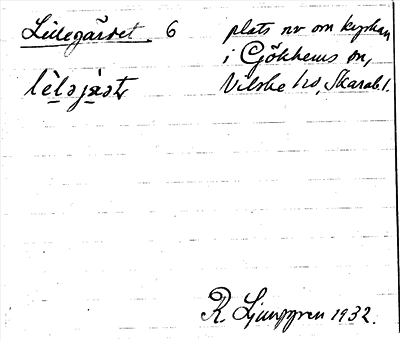 Lillegärdet 6 plats nv om kyrkan
i Gökhems sn,
lèlǝjäǝt Vilske hd, Skarab. l.
R. Ljunggren 1932.